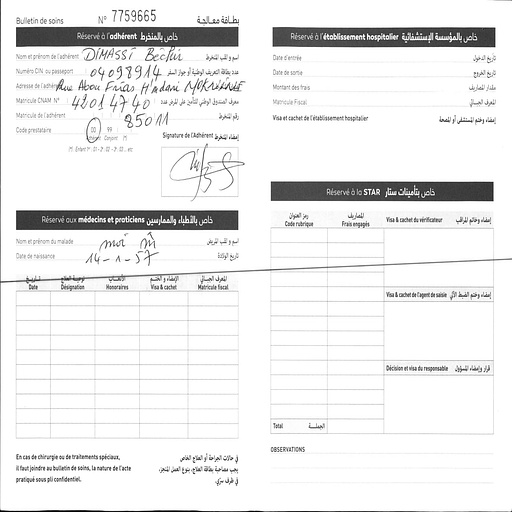 Bulletin de soins N° 7759665 بطاقة معالجة
Réservé à l'adhérent خاص بالمنخرط
Nom et prénom de l'adhérent DIMASSI Bechir اسم و لقب المنخرط
Numéro CIN ou passeport 04098914 عدد بطاقة التعريف الوطنية أو جواز السفر
Adresse de l'adhérent Rue Abou Firas H'mdani MOKNINE
Matricule CNAM N° 42014740 معرف الصندوق الوطني للتأمين على المرض عدد
Matricule de l'adhérent 85011 رقم المنخرط
Code prestataire 00 99
Adhérent Conjoint
Signature de l'Adhérent إمضاء المنخرط
Réservé aux médecins et praticiens خاص بالأطباء والممارسين
Nom et prénom du malade moi m اسم و لقب المريض
Date de naissance 14-1-57 تاريخ الولادة
تاريخ نوعية العلاج الأتعاب الإمضاء و الختم المعرف الجبائي
Date Désignation Honoraires Visa & cachet Matricule fiscal
En cas de chirurgie ou de traitements spéciaux,
il faut joindre au bulletin de soins, la nature de l'acte
pratiqué sous pli confidentiel.
في حالات الجراحة أو العلاج الخاص
يجب مصاحبة بطاقة العلاج، بنوع العمل المنجز،
في ظرف سري.
Réservé à l'établissement hospitalier خاص بالمؤسسة الإستشفائية
Date d'entrée تاريخ الدخول
Date de sortie تاريخ الخروج
Montant des frais مقدار المصاريف
Matricule Fiscal المعرف الجبائي
Visa et cachet de l'établissement hospitalier إمضاء وختم المستشفى أو المصحة
Réservé à la STAR خاص بتأمينات ستار
رمز العنوان المصاريف
Code rubrique Frais engagés
Visa & cachet du vérificateur إمضاء وخاتم المراقب
Visa & cachet de l'agent de saisie إمضاء وختم الضبط الآلي
Décision et visa du responsable قرار وإمضاء المسؤول
Total الجملة
OBSERVATIONS